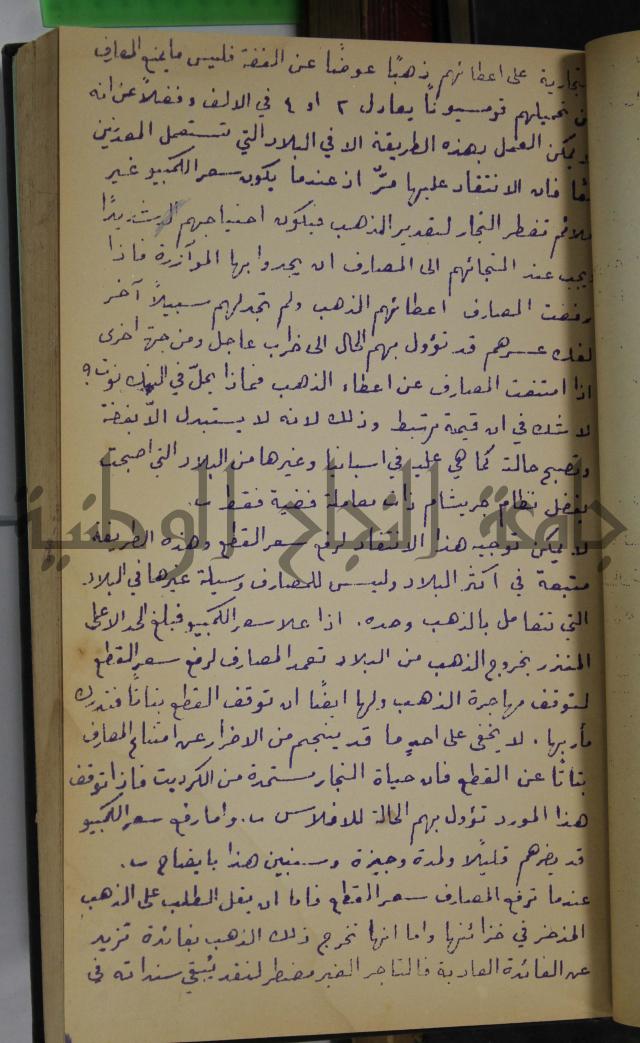 تجارية على اعطائهم ذهبًا عوضًا عن الفضة فليس ما يمنع المصارف
من تحميلهم قومسيونًا يعادل ٢ او ٤ في الالف وفضلاً عن انه
لا يمكن العمل بهذه الطريقة الا في البلاد التي تستعمل المعدنين
معًا فان الانتقاد عليها مرٌّ اذ عندما يكون سعر الكمبيو غير
ملائم تضطر التجار لتقدير الذهب فيكون احتياجهم اليه شديدًا
ويجب عند التجائهم الى المصارف ان يجدوا بها المؤازرة فاذا
رفضت المصارف اعطائهم الذهب ولم تجد لهم سبيلاً آخر
لفك عسرهم قد تؤول بهم الحال الى خراب عاجل ومن جهة اخرى
اذا امتنعت المصارف عن اعطاء الذهب فماذا يحلّ في البنك نوت ؟
لا شك في ان قيمته ترتبط وذلك لانه لا يستبدل الاّ بفضة
وتصبح حالته كما هي عليه في اسبانيا وغيرها من البلاد التي اصبحت
بفضل نظام جريشام ذات معاملة فضية فقط ..
لا يمكن توجيه هذا الانتقاد لرفع سعر القطع وهذه الطريقة
متبعة في اكثر البلاد وليس للمصارف وسيلة غيرها في البلاد
التي تتعامل بالذهب وحده. اذا علا سعر الكمبيو فبلغ الحد الاعلى
المنذر بخروج الذهب من البلاد تعمد المصارف لرفع سعر القطع
لتوقف مهاجرة الذهب ولها ايضًا ان توقف القطع بتاتًا فتدرك
مأربها . لا يخفى على احدٍ ما قد ينجم من الاضرار عن امتناع المصارف
بتاتًا عن القطع فان حياة التجار مستمدة من الكرديت فاذا توقف
هذا المورد تؤول بهم الحالة للافلاس .. واما رفع سعر الكمبيو
قد يضرهم قليلًا ولمدة وجيزة وسنبين هذا بايضاح ..
عندما ترفع المصارف سعر القطع فاما ان يقل الطلب على الذهب
المدخر في خزائنها واما انها تخرج ذلك الذهب بفائدة تزيد
عن الفائدة العادية فالتاجر الغير مضطر لنقد يُبقي سنداته في
جامعة النجاح الوطنية